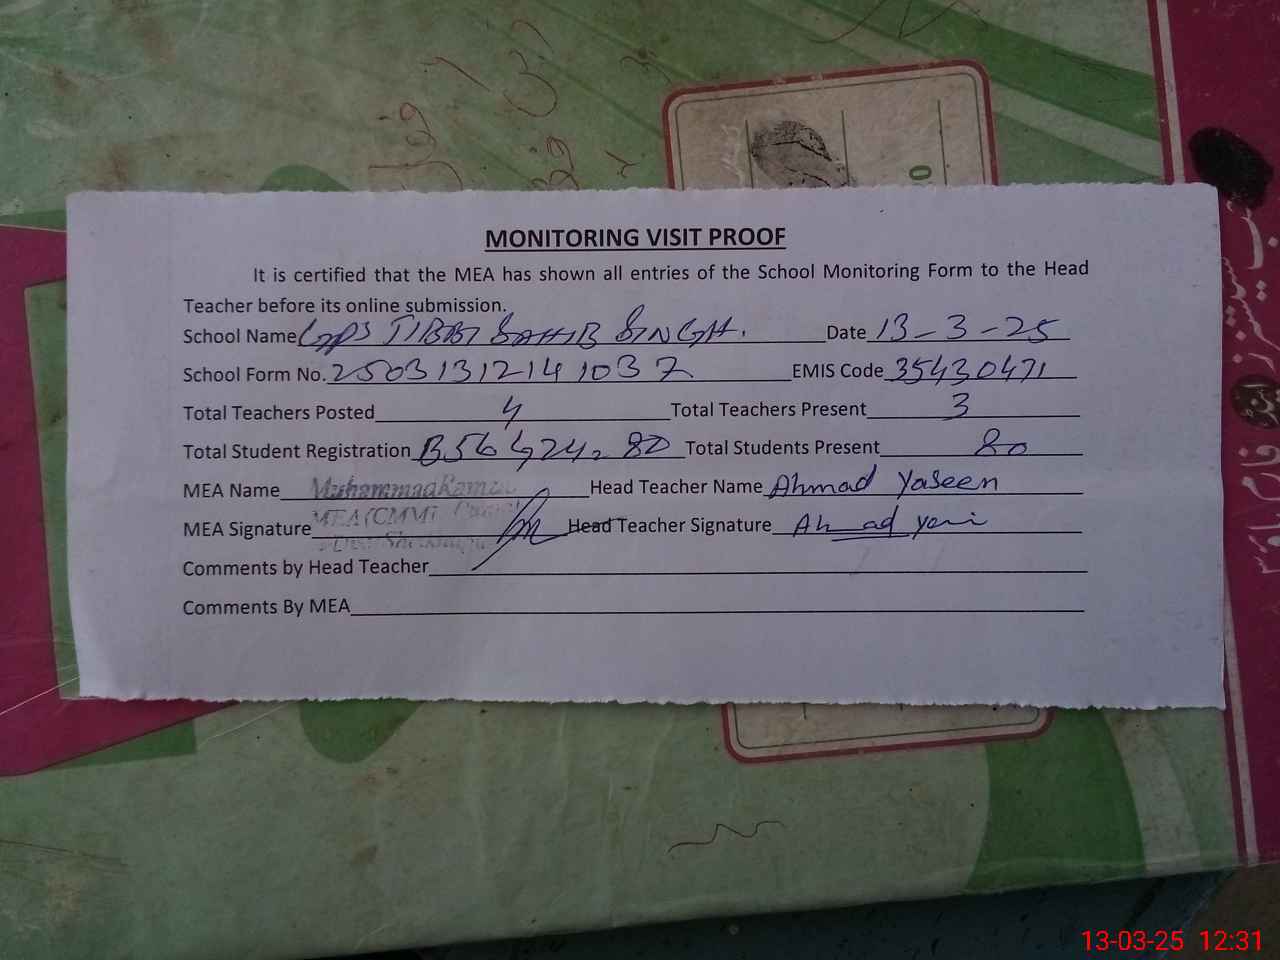 MONITORING VISIT PROOF
It is certified that the MEA has shown all entries of the School Monitoring Form to the Head
Teacher before its online submission.
School Name GPS TIBBI SAHIB SINGH. Date 13-3-25
School Form No. 2503131214 1037 EMIS Code 35430471
Total Teachers Posted 4 Total Teachers Present 3
Total Student Registration B56 G24= 80 Total Students Present 80
MEA Name Muhammad Head Teacher Name Ahmad Yaseen
MEA Signature MEA (CMMF Head Teacher Signature Ahmad
Comments by Head Teacher
Comments By MEA
13-03-25 12:31